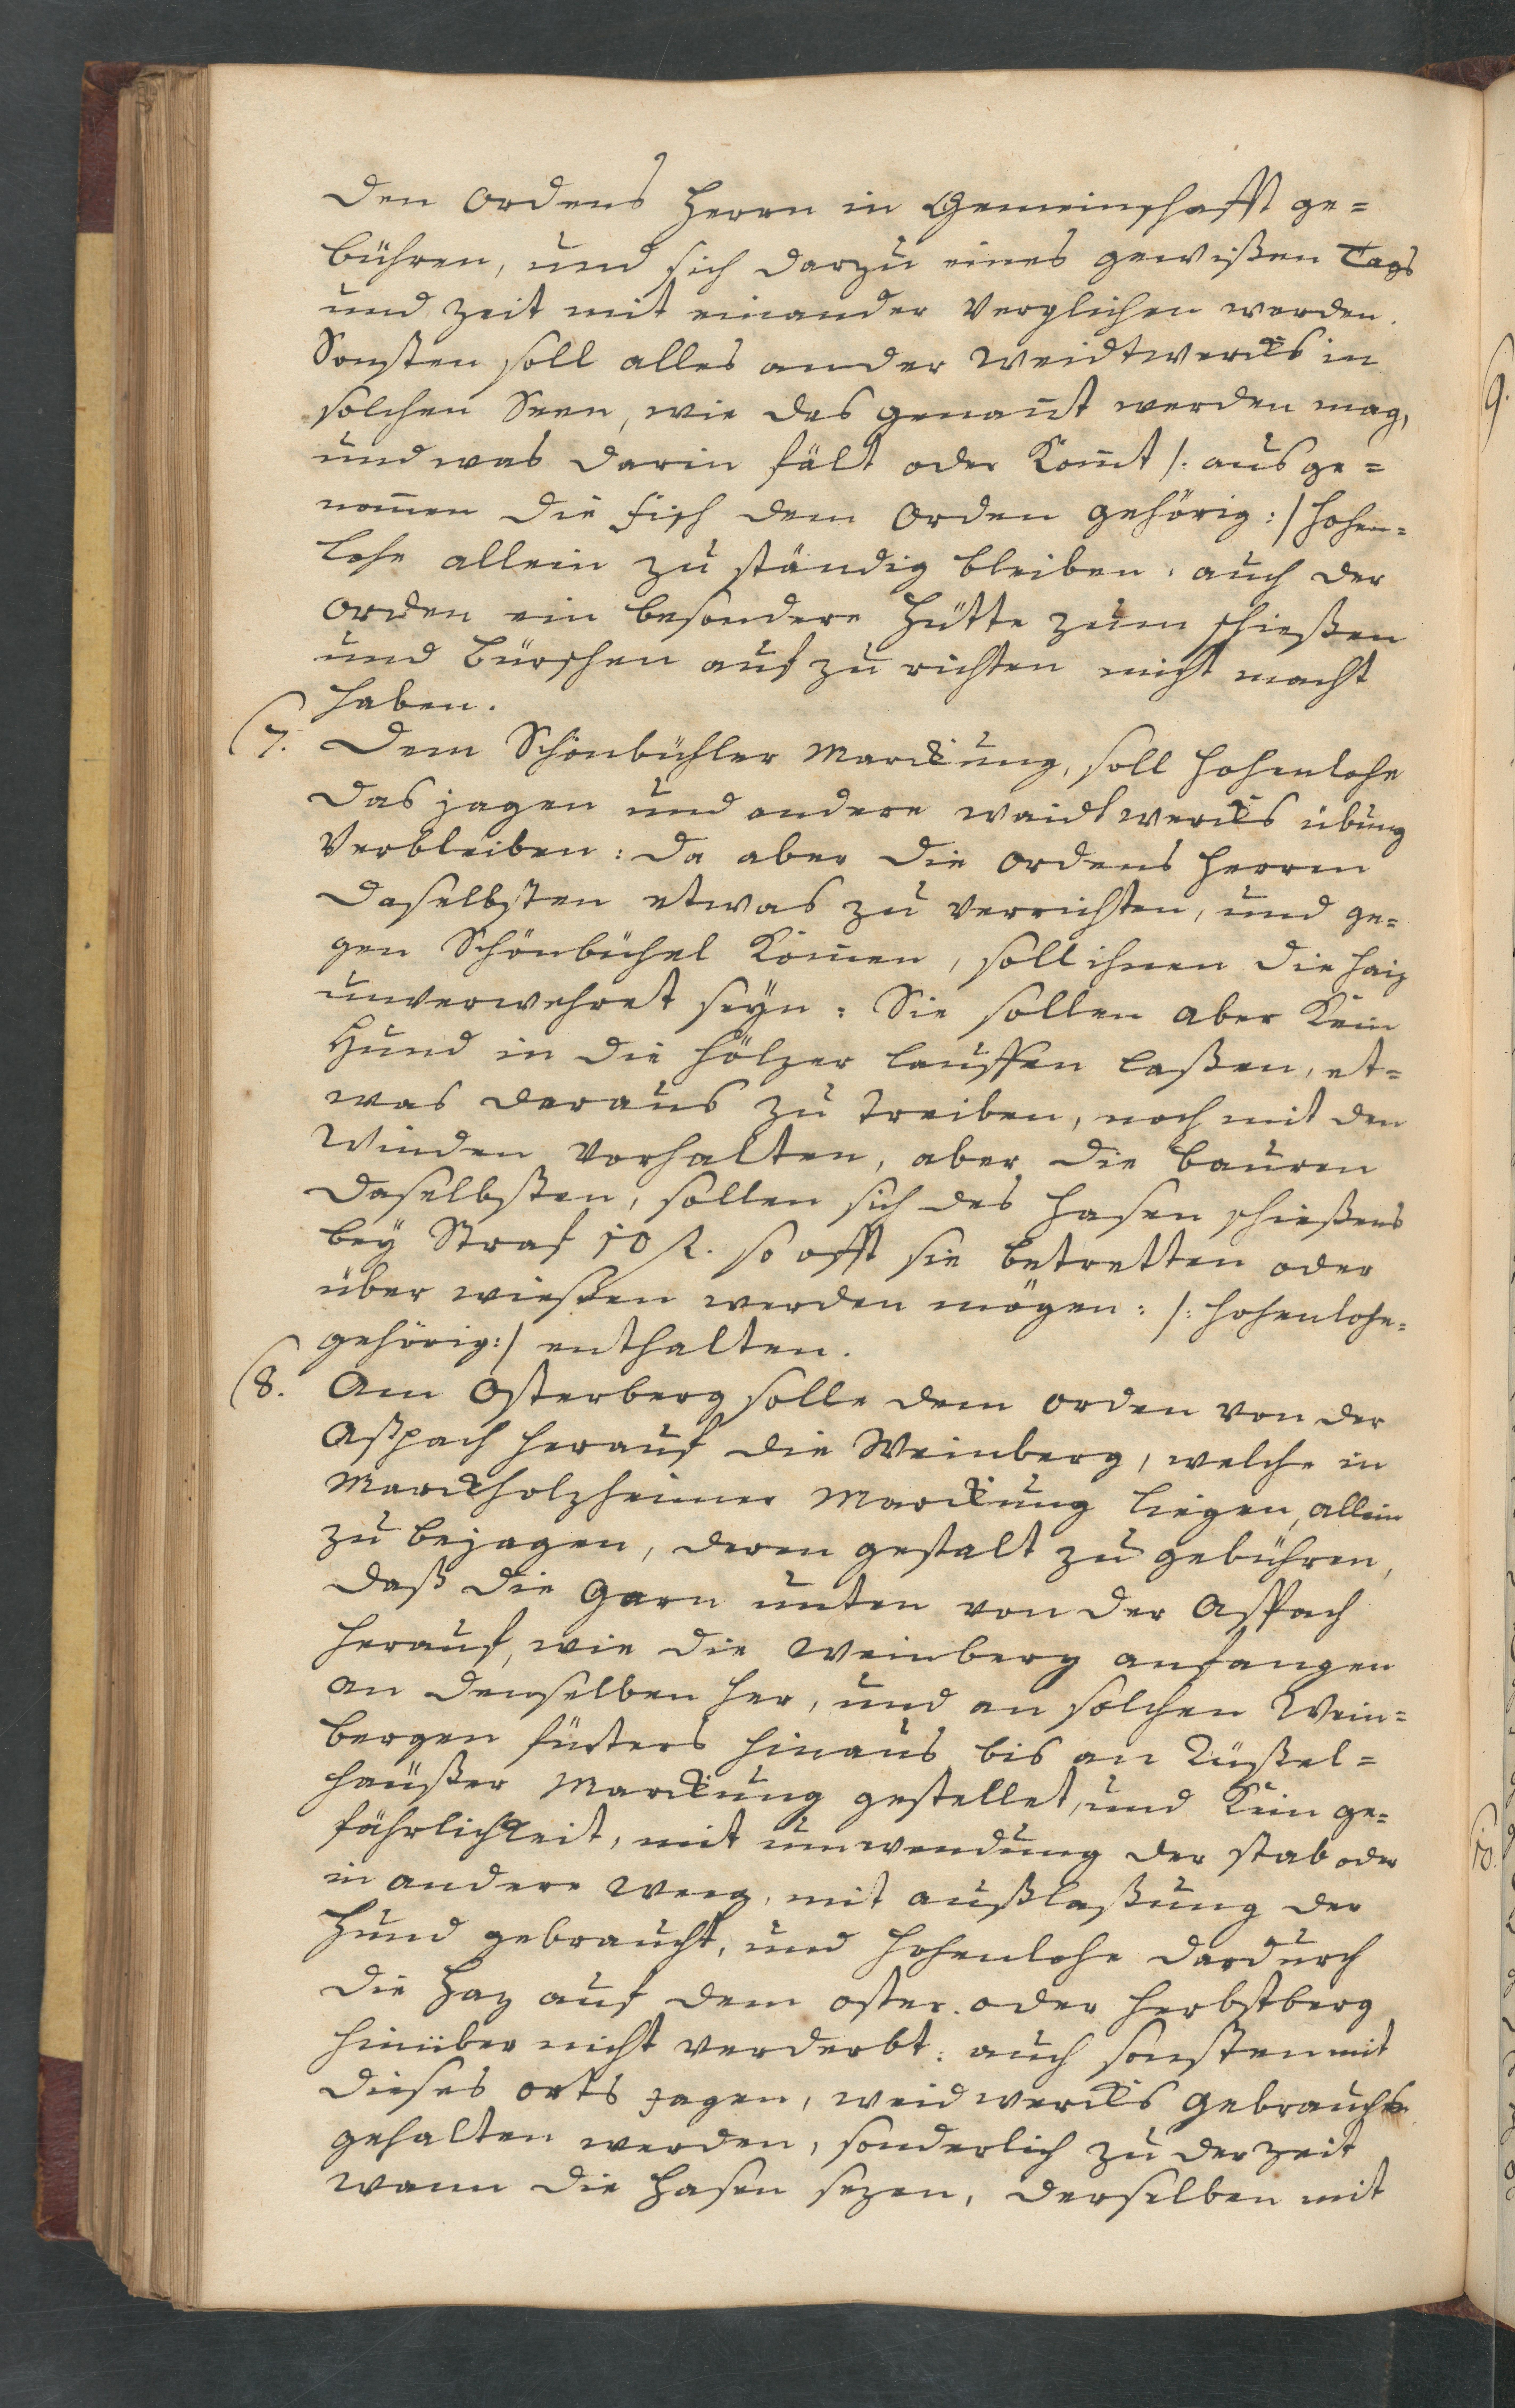 den Ordens Herrn in Gemeinschafft ge=
bühren, und sich darzu eines gewißen Tags
und Zeit mit einander Verglichen werden.
Sonsten soll alles ander Weidtwercks in
solchen Seen, wie das genant werden mag,
und was darin fält oder Komt /: ausge=
nomen die Fisch dem Orden gehörig :/ Hohen=
lohe allein zu ständig bleiben, auch der
Orden ein besondere Hütte zum schießen
und Bürschen auf zu richten nicht macht
haben.
(7. Dem Schönbühler Marckung, soll Hohenlohe
das jagen und andere waidtwercks übung
Verbleiben: da aber die Ordens Herren
daselbsten etwas zu verrichten, und ge=
gen Schönbühel Komen, soll ihnen die Haiz
unverwehret seyn: Sie sollen aber Kein
Hund in die Hölzer lauffen laßen, et=
was daraus zu treiben, noch mit den
Winden vorhalten, aber die Bauren
daselbsten, sollen sich des Hasen schießens
bey Straf 10 fl. so offt sie betretten oder
über wießen werden mögen: /: Hohenlohe=
gehörig :/ enthalten.
(8. Am Osterberg solle dem Orden von der
Aßpach herauf die Weinberg, welche in
Marckholzheimer Marckung liegen, allein
zu bejagen, deren gestalt zu gebühren,
daß die Garn unten von der Aspach
herauf, wie die Weinberg anfangen
an denselben her, und an solchen Wein=
bergen fürters hinaus bis an Rüßel=
haüßer Marckung gestellet, und Kein ge=
fährlichkeit, mit umwendung der stab oder
in andere Weeg, mit außlaßung der
Hund gebraucht, und Hohenlohe dardurch
die Haz auf dem Oster- oder Herbstberg
hinüber nicht verderbt: auch sonsten mit
dieses orts Jagen, weidwercks Gebrauchs
gehalten werden, sonderlich zu der Zeit
wann die Hasen sezen, derselben mit